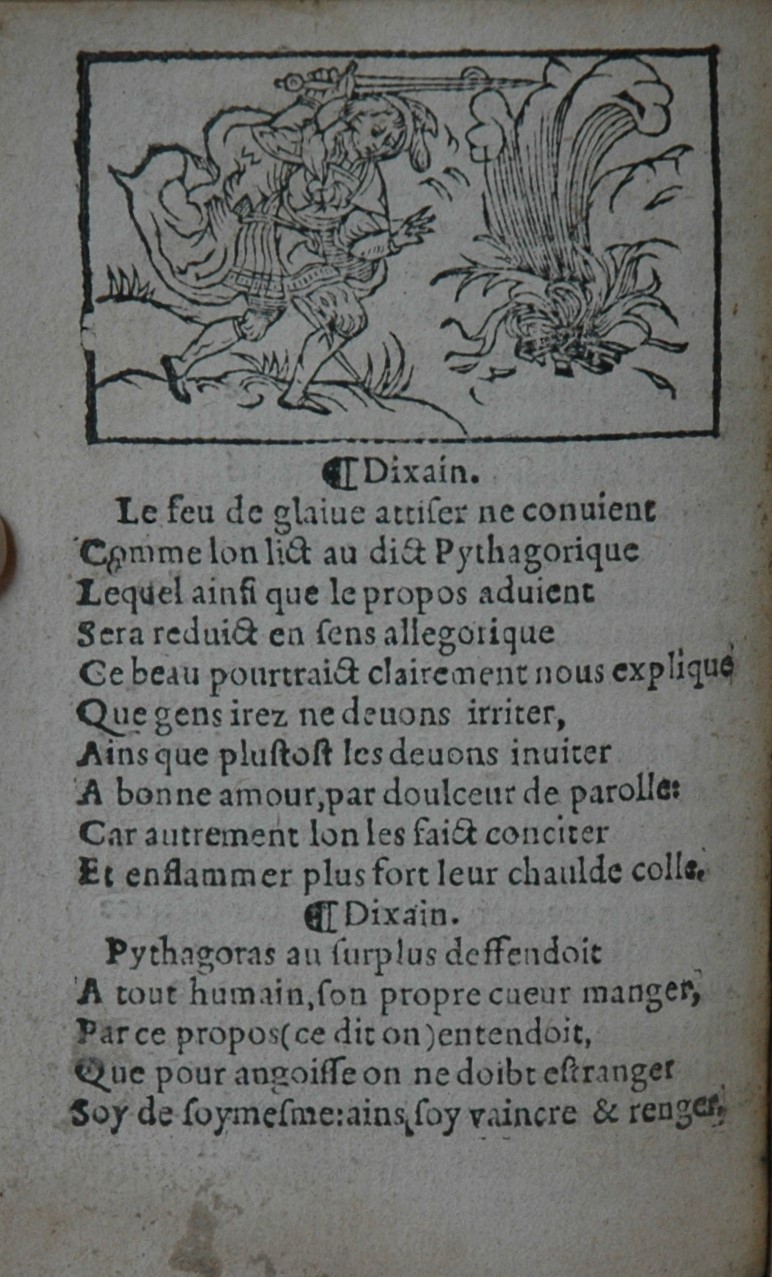 ¶ Dixain.
Le feu de glaiue attiſer ne conuient
Comme lon lict au dict Pythagorique
Lequel ainſi que le propos aduient
Sera reduict en ſens allegorique
Ce beau pourtraict clairement nous explique
Que gens irez ne deuons irriter,
Ains que pluſtoſt les deuons inuiter
A bonne amour,par doulceur de parolle:
Car autrement lon les faict conciter
Et enflammer plus fort leur chaulde colle.
¶ Dixain.
Pythagoras au ſurplus deffendoit
A tout humain,ſon propre cueur manger,
Par ce propos(ce dit on)entendoit,
Que pour angoiſſe on ne doibt eſtranger
Soy de ſoymeſme:ains ſoy vaincre & renger,